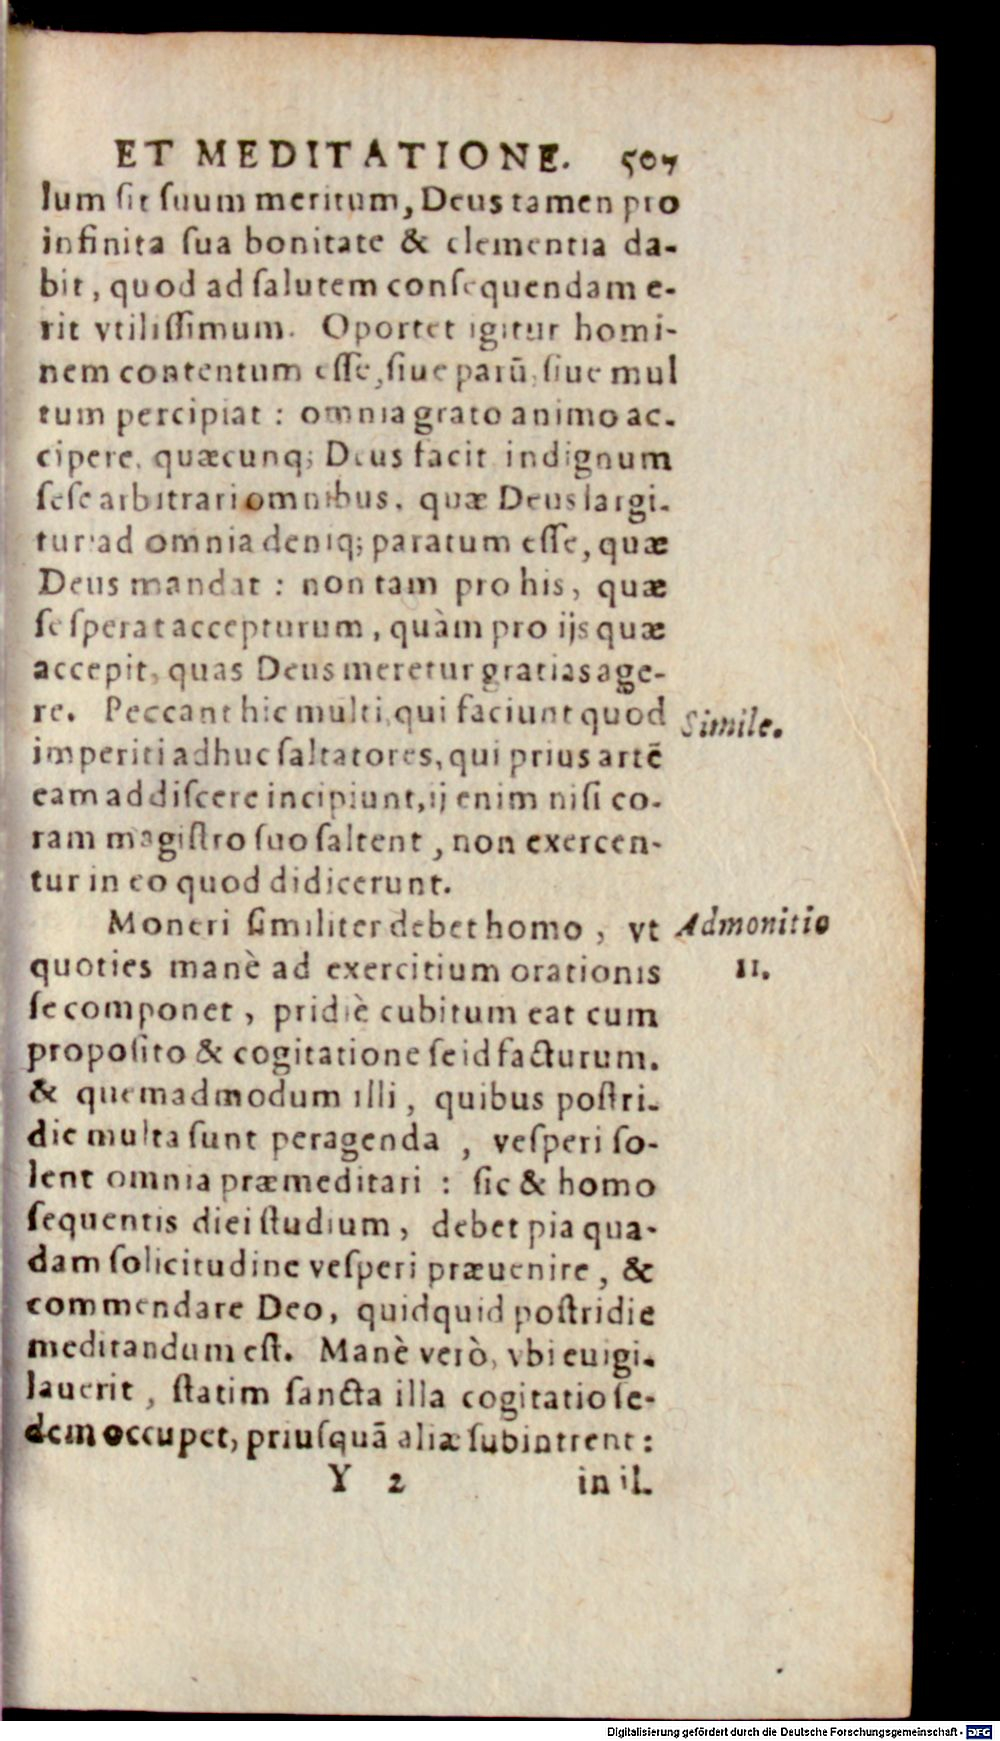 ET MEDITATIONE. 507
lum sit suum meritum, Deus tamen pro
infinita sua bonitate & clementia da-
bit, quod ad salutem consequendam e-
rit vtilissimum. Oportet igitur homi-
nem contentum esse, siue parū, siue mul
tum percipiat : omnia grato animo ac-
cipere, quæcunq; Deus facit indignum
sese arbitrari omnibus, quæ Deus largi-
tur: ad omnia deniq; paratum esse, quæ
Deus mandat : non tam pro his, quæ
se sperat accepturum, quàm pro ijs quæ
accepit, quas Deus meretur gratias age-
re. Peccant hic multi, qui faciunt quod
Simile.
imperiti adhuc saltatores, qui prius artē
eam addiscere incipiunt, ij enim nisi co-
ram magistro suo saltent, non exercen-
tur in eo quod didicerunt.
Moneri similiter debet homo, vt
Admonitio
quoties manè ad exercitium orationis
II.
se componet, pridiè cubitum eat cum
proposito & cogitatione se id facturum.
& quemadmodum illi, quibus postri-
die multa sunt peragenda, vesperi so-
lent omnia præmeditari : sic & homo
sequentis diei studium, debet pia qua-
dam solicitudine vesperi præuenire, &
commendare Deo, quidquid postridie
meditandum est. Manè verò, vbi euigi-
lauerit, statim sancta illa cogitatio se-
dem occupet, priusquā aliæ subintrent :
Y 2 in il-
Digitalisierung gefördert durch die Deutsche Forschungsgemeinschaft - DFG